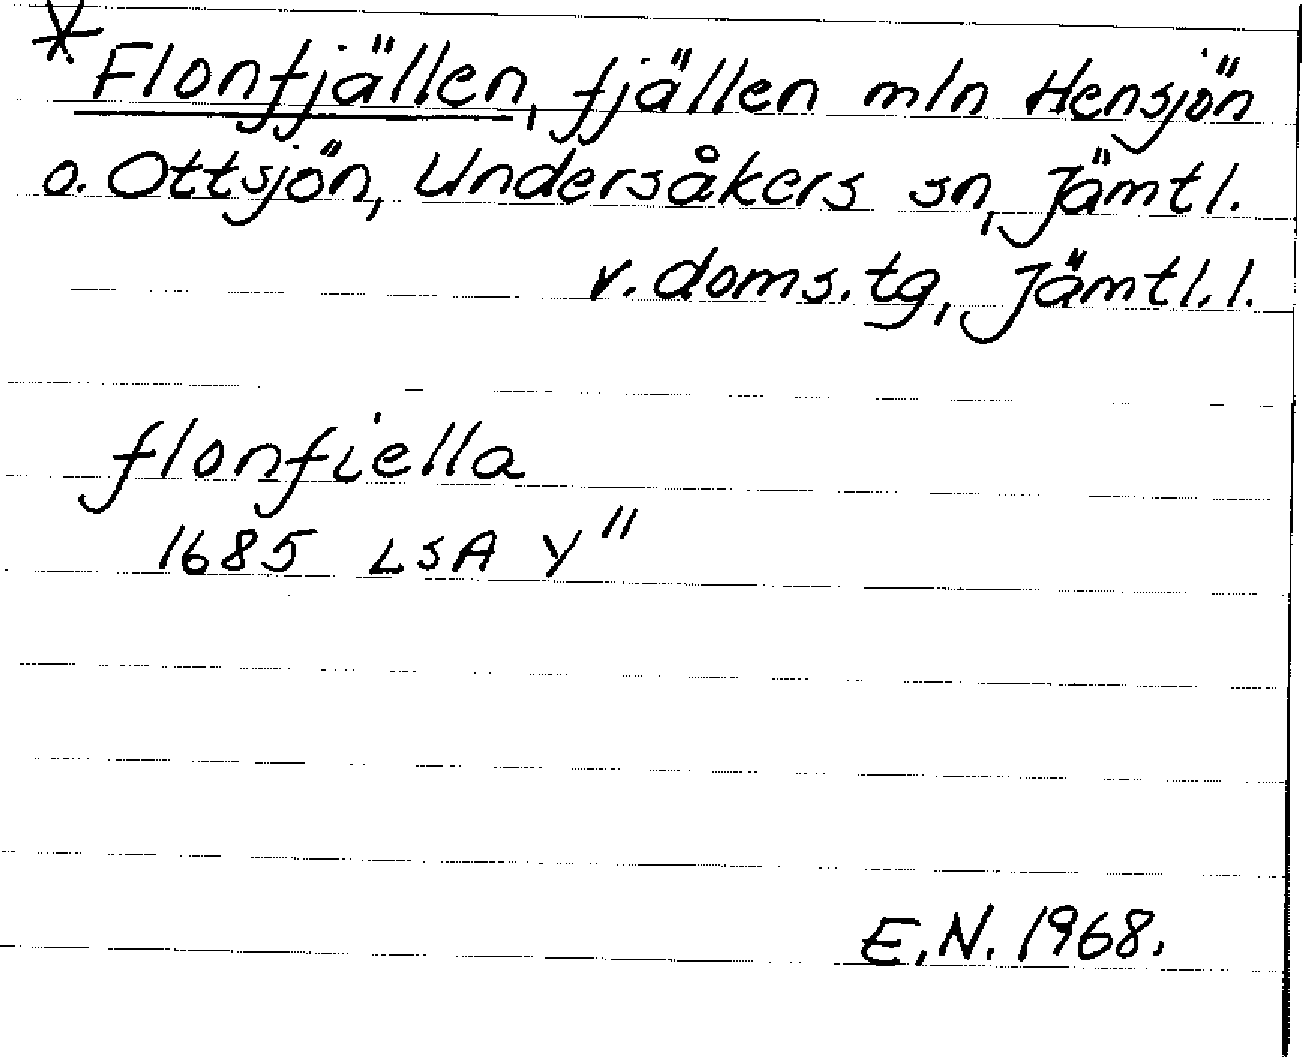 * Flonfjällen, fjällen mln Hensjön
o. Ottsjön, Undersåkers sn, Jämtl.
v. doms.tg, Jämtl.l.
flonfiella
1685 LSA Y"
E.N. 1968.